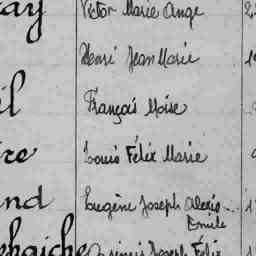 ay Victor Marie Ange 2
Henri Jean Marie 1
il François Moïse
re Louis Félix Marie
nd Eugène Joseph Alexis 1
Emile
ehaiche Joseph Félix